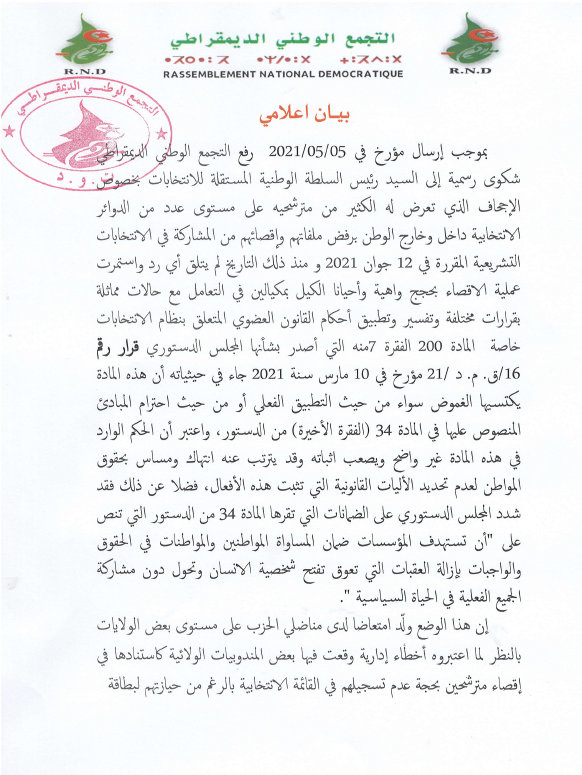 التجمع الوطني الديمقراطي
RASSEMBLEMENT NATIONAL DEMOCRATIQUE
R.N.D
R.N.D
التجمع الوطني الديمقراطي
ت. و. د
بيان اعلامي
بموجب إرسال مؤرخ في 2021/05/05 رفع التجمع الوطني الديمقراطي
شكوى رسمية إلى السيد رئيس السلطة الوطنية المستقلة للانتخابات بخصوص
الإجحاف الذي تعرض له الكثير من مترشحيه على مستوى عدد من الدوائر
الانتخابية داخل وخارج الوطن برفض ملفاتهم وإقصائهم من المشاركة في الانتخابات
التشريعية المقررة في 12 جوان 2021 و منذ ذلك التاريخ لم يتلق أي رد واستمرت
عملية الاقصاء بحجج واهية وأحيانا الكيل بمكيالين في التعامل مع حالات مماثلة
بقرارات مختلفة وتفسير وتطبيق أحكام القانون العضوي المتعلق بنظام الانتخابات
خاصة المادة 200 الفقرة 7منه التي أصدر بشأنها المجلس الدستوري قرار رقم
16/ق. م. د /21 مؤرخ في 10 مارس سنة 2021 جاء في حيثياته أن هذه المادة
يكتسيها الغموض سواء من حيث التطبيق الفعلي أو من حيث احترام المبادئ
المنصوص عليها في المادة 34 (الفقرة الأخيرة) من الدستور، واعتبر أن الحكم الوارد
في هذه المادة غير واضح ويصعب اثباته وقد يترتب عنه انتهاك ومساس بحقوق
المواطن لعدم تحديد الأليات القانونية التي تثبت هذه الأفعال، فضلا عن ذلك فقد
شدد المجلس الدستوري على الضمانات التي تقرها المادة 34 من الدستور التي تنص
على "أن تستهدف المؤسسات ضمان المساواة المواطنين والمواطنات في الحقوق
والواجبات بإزالة العقبات التي تعوق تفتح شخصية الانسان وتحول دون مشاركة
الجميع الفعلية في الحياة السياسية ".
إن هذا الوضع ولّد امتعاضا لدى مناضلي الحزب على مستوى بعض الولايات
بالنظر لما اعتبروه أخطاء إدارية وقعت فيها بعض المندوبيات الولائية كاستنادها في
إقصاء مترشحين بحجة عدم تسجيلهم في القائمة الانتخابية بالرغم من حيازتهم لبطاقة